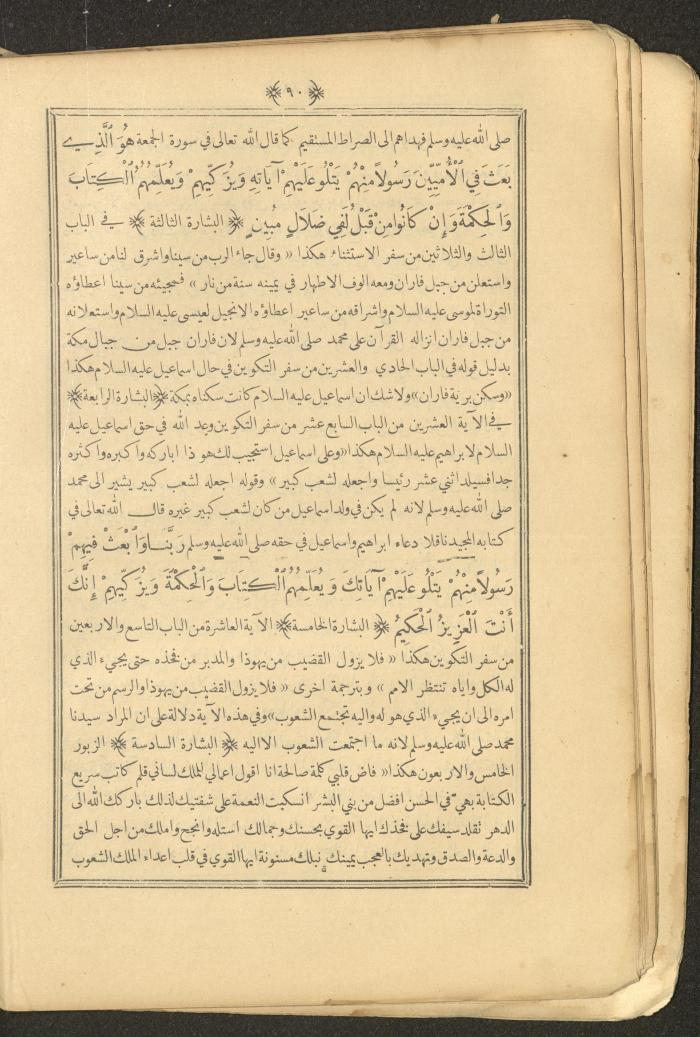 ﴿ ٩٠ ﴾
صلى الله عليه وسلم فهداهم الى الصراط المستقيم كما قال الله تعالى في سورة الجمعة هُوَ ٱلَّذِي
بَعَثَ فِي ٱلْأُمِّيِّينَ رَسُولاً مِنْهُمْ يَتْلُو عَلَيْهِمْ آيَاتِهِ وَيُزَكِّيهِمْ وَيُعَلِّمُهُمُ ٱلْكِتَابَ
وَٱلْحِكْمَةَ وَإِنْ كَانُوا مِنْ قَبْلُ لَفِي ضَلَالٍ مُبِينٍ ﴿ البشارة الثالثة ﴾ في الباب
الثالث والثلاثين من سفر الاستثناء هكذا « وقال جاء الرب من سينا واشرق لنا من ساعير
واستعلن من جبل فاران ومعه الوف الاطهار في يمينه سنة من نار » فمجيئه من سينا اعطاؤه
التوراة لموسى عليه السلام واشراقه من ساعير اعطاؤه الانجيل لعيسى عليه السلام واستعلانه
من جبل فاران انزاله القرآن على محمد صلى الله عليه وسلم لان فاران جبل من جبال مكة
بدليل قوله في الباب الحادي والعشرين من سفر التكوين في حال اسماعيل عليه السلام هكذا
«وسكن برية فاران» ولا شك ان اسماعيل عليه السلام كانت سكناه بمكة ﴿البشارة الرابعة﴾
في الآية العشرين من الباب السابع عشر من سفر التكوين وعد الله في حق اسماعيل عليه
السلام لابراهيم عليه السلام هكذا «وعلى اسماعيل استجيب لك هو ذا اباركه واكبره واكثره
جدا فسيلد اثني عشر رئيسا واجعله لشعب كبير » وقوله اجعله لشعب كبير يشير الى محمد
صلى الله عليه وسلم لانه لم يكن في ولد اسماعيل من كان لشعب كبير غيره قال الله تعالى في
كتابه المجيد ناقلا دعاء ابراهيم واسماعيل في حقه صلى الله عليه وسلم رَبَّنَا وَٱبْعَثْ فِيهِمْ
رَسُولاً مِنْهُمْ يَتْلُو عَلَيْهِمْ آيَاتِكَ وَيُعَلِّمُهُمُ ٱلْكِتَابَ وَٱلْحِكْمَةَ وَيُزَكِّيهِمْ إِنَّكَ
أَنْتَ ٱلْعَزِيزُ ٱلْحَكِيمُ ﴿ البشارة الخامسة ﴾ الآية العاشرة من الباب التاسع والاربعين
من سفر التكوين هكذا « فلا يزول القضيب من يهوذا والمدبر من فخذه حتى يجيء الذي
له الكل واياه تنتظر الامم » وبترجمة اخرى « فلا يزول القضيب من يهوذا والرسم من تحت
امره الى ان يجيء الذي هو له واليه تجتمع الشعوب» وفي هذه الآية دلالة على ان المراد سيدنا
محمد صلى الله عليه وسلم لانه ما اجتمعت الشعوب الا اليه ﴿ البشارة السادسة ﴾ الزبور
الخامس والاربعون هكذا « فاض قلبي كلمة صالحة انا اقول اعمالي للملك لساني قلم كاتب سريع
الكتابة بهيّ في الحسن افضل من بني البشر انسكبت النعمة على شفتيك لذلك باركك الله الى
الدهر تقلد سيفك على فخذك ايها القوي بحسنك وجمالك استله وانجح واملك من اجل الحق
والدعة والصدق وتهديك بالعجب يمينك نبلك مسنونة ايها القوي في قلب اعداء الملك الشعوب